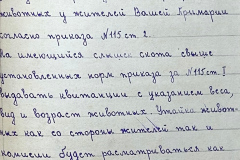 животных у жителей Вашей Примарии
согласно приказа №115 ст. 2.
На имеющийся слышек скота свыше
установленных норм приказа за №115 ст. I
выдавать квитанции с указанием веса,
вид и возраст животных. Утайка живот-
ных как со стороны жителей так и
комисии будет расматриваться как